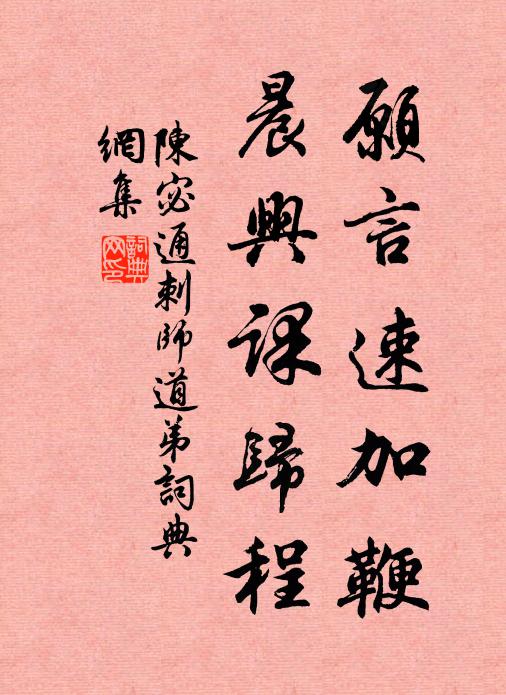 願言速加鞭
晨興課歸程
陳宓通刺師道弟詞典
網集
詞典
网印